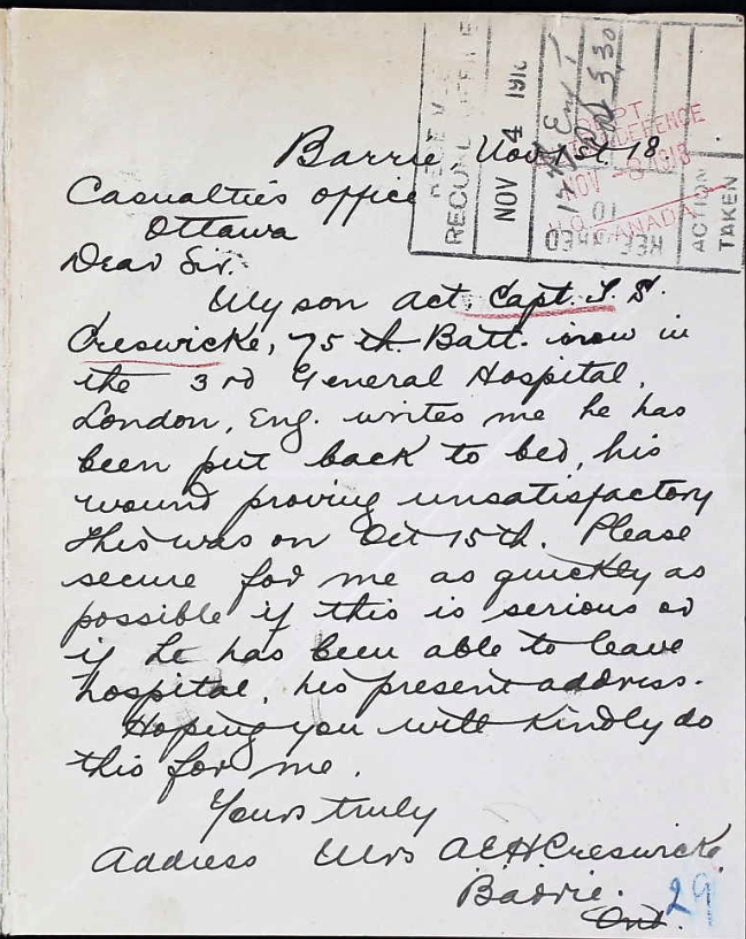 RECORD OFFICE
NOV 4 191
3.30
DEPT
DEFENCE
NOV -8 1918
H.Q. CANADA
10
REFERRED
ACTION
TAKEN
Barrie Nov 1st. 18.
Casualties office
Ottawa
Dear Sir.
My son Act. Capt. T. D.
Creswicke, 75th. Batt. now in
the 3rd General Hospital,
London, Eng. writes me he has
been put back to bed, his
wound proving unsatisfactory
this was on Oct 15th. Please
secure for me as quickly as
possible if this is serious or
if he has been able to leave
hospital, his present address.
Hoping you will kindly do
this for me.
Yours truly
Address Mrs A E H Creswicke,
Barrie.
Ont.
29